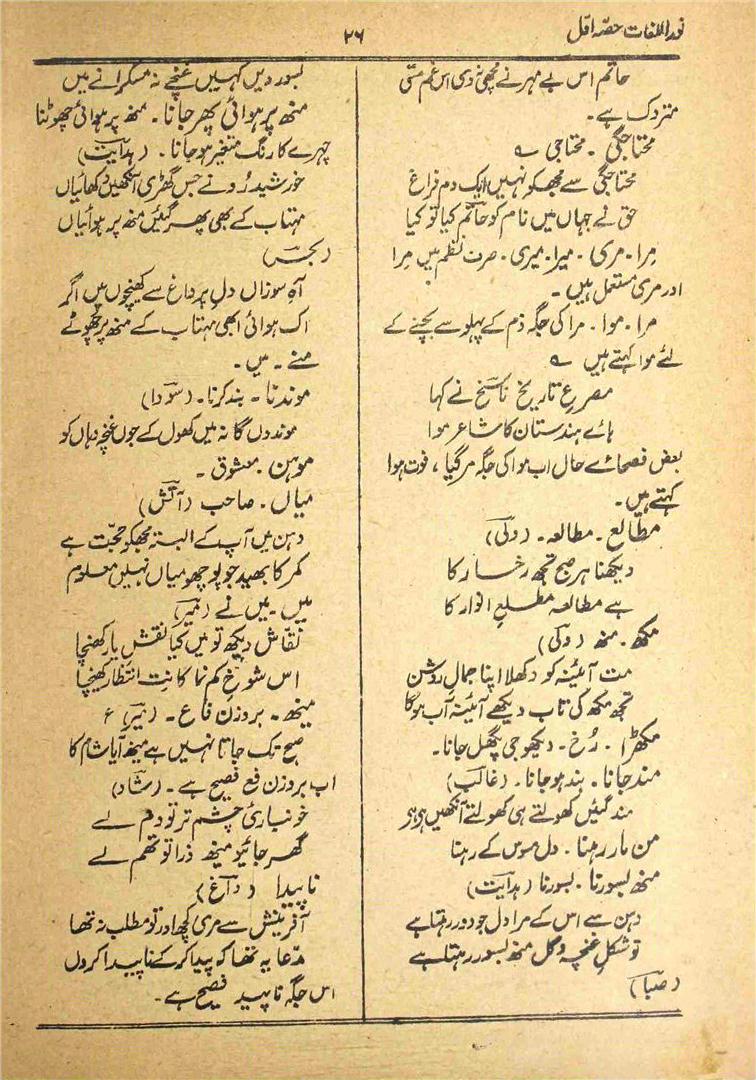 نور اللغات حصّہ اوّل
۲۶
حاتم اس بے مہر نے مچھی نہ دی اس غم ستی
متروک ہے۔
محتاجگی ۔ محتاجی ؎
محتاجگی سے مجھکو نہیں ایک دم فراغ
حق نے جہاں میں نام کو حاتم کیا تو کیا
مرا ۔ مری ۔ میرا ۔ میری ۔ صرف نظم میں مرا
اور مری مستعمل ہیں ۔
مرا ۔ موا ۔ مرا کی جگہ ذم کے پہلو سے بچنے کے
لئے موا کہتے ہیں ؎
مصرعِ تاریخ ناسخ نے کہا
ہائے ہندستان کا شاعر موا
بعض فصحائے حال اب موا کی جگہ مر گیا ، فوت ہوا
کہتے ہیں ۔
مطّالع ۔ مطالعہ ۔ (ولی)
دیکھنا ہر صبح تجھ رخسار کا
ہے مطالعہ مطلعِ انوار کا
مکھ ۔ منھ (ولی)
مت آئینہ کو دکھلا اپنا جمالِ روشن
تجھ مکھ کی تاب دیکھے آئینہ آب ہوگا
مکھڑا ۔ رُخ ۔ دیکھو جی پگھل جانا ۔
مند جانا ۔ بند ہو جانا ۔ (غالب)
مند گئیں کھولتے ہی کھولتے آنکھیں ہے ہے
من مار رہنا ۔ دل موس کے رہنا
منھ بسورنا ۔ بسورنا (ہدایت)
دہن سے اس کے مرا دل جو دور رہتا ہے
تو شکلِ غنچہ و گل منھ بسور رہتا ہے
(صبا)
بسور دیں کہیں غنچے نہ مسکرانے میں
منھ پر ہوائی پھر جانا ۔ منھ پر ہوائی چھوٹنا
چہرے کا رنگ متغیر ہو جانا ۔ (ہدایت)
خورشید رُو نے جس گھڑی آنکھیں دکھائیاں
مہتاب کے بھی پھر گئیں منھ پر ہوائیاں
(بحر)
آہِ سوزاں دلِ پر داغ سے کھینچوں میں اگر
اک ہوائی ابھی مہتاب کے منھ پر چھوٹے
منے ۔ میں ۔
موندنا ۔ بند کرنا ۔ (سودا)
موندوں گا نہ میں کھول کے جوں غنچہ دہاں کو
موہن ۔ معشوق ۔
میاں ۔ صاحب (آتش)
دہن میں آپ کے البتہ مجھکو حجّت ہے
کمر کا بھید جو پوچھو میاں نہیں معلوم
میں ۔ میں نے (میر)
نقاش دیکھ تو میں کیا نقشِ یار کھنچا
اس شوخِ کم نما کا نِت انتظار کھنچا
مینھ ۔ بروزن فاع ۔ (میر) ع
صبح تک جاتا نہیں ہے مینھ آیا شام کا
اب بروزن فع فصیح ہے ۔ (رشاد)
خونباریٔ چشمِ تر تو دم لے
گھر جائیو مینھ ذرا تو تھم لے
ناپیدا (داغ)
آفرینش سے مری کچھ اور تو مطلب نہ تھا
مدّعا یہ تھا کہ پیدا کر کے ناپیدا کروں
اس جگہ ناپید فصیح ہے ۔